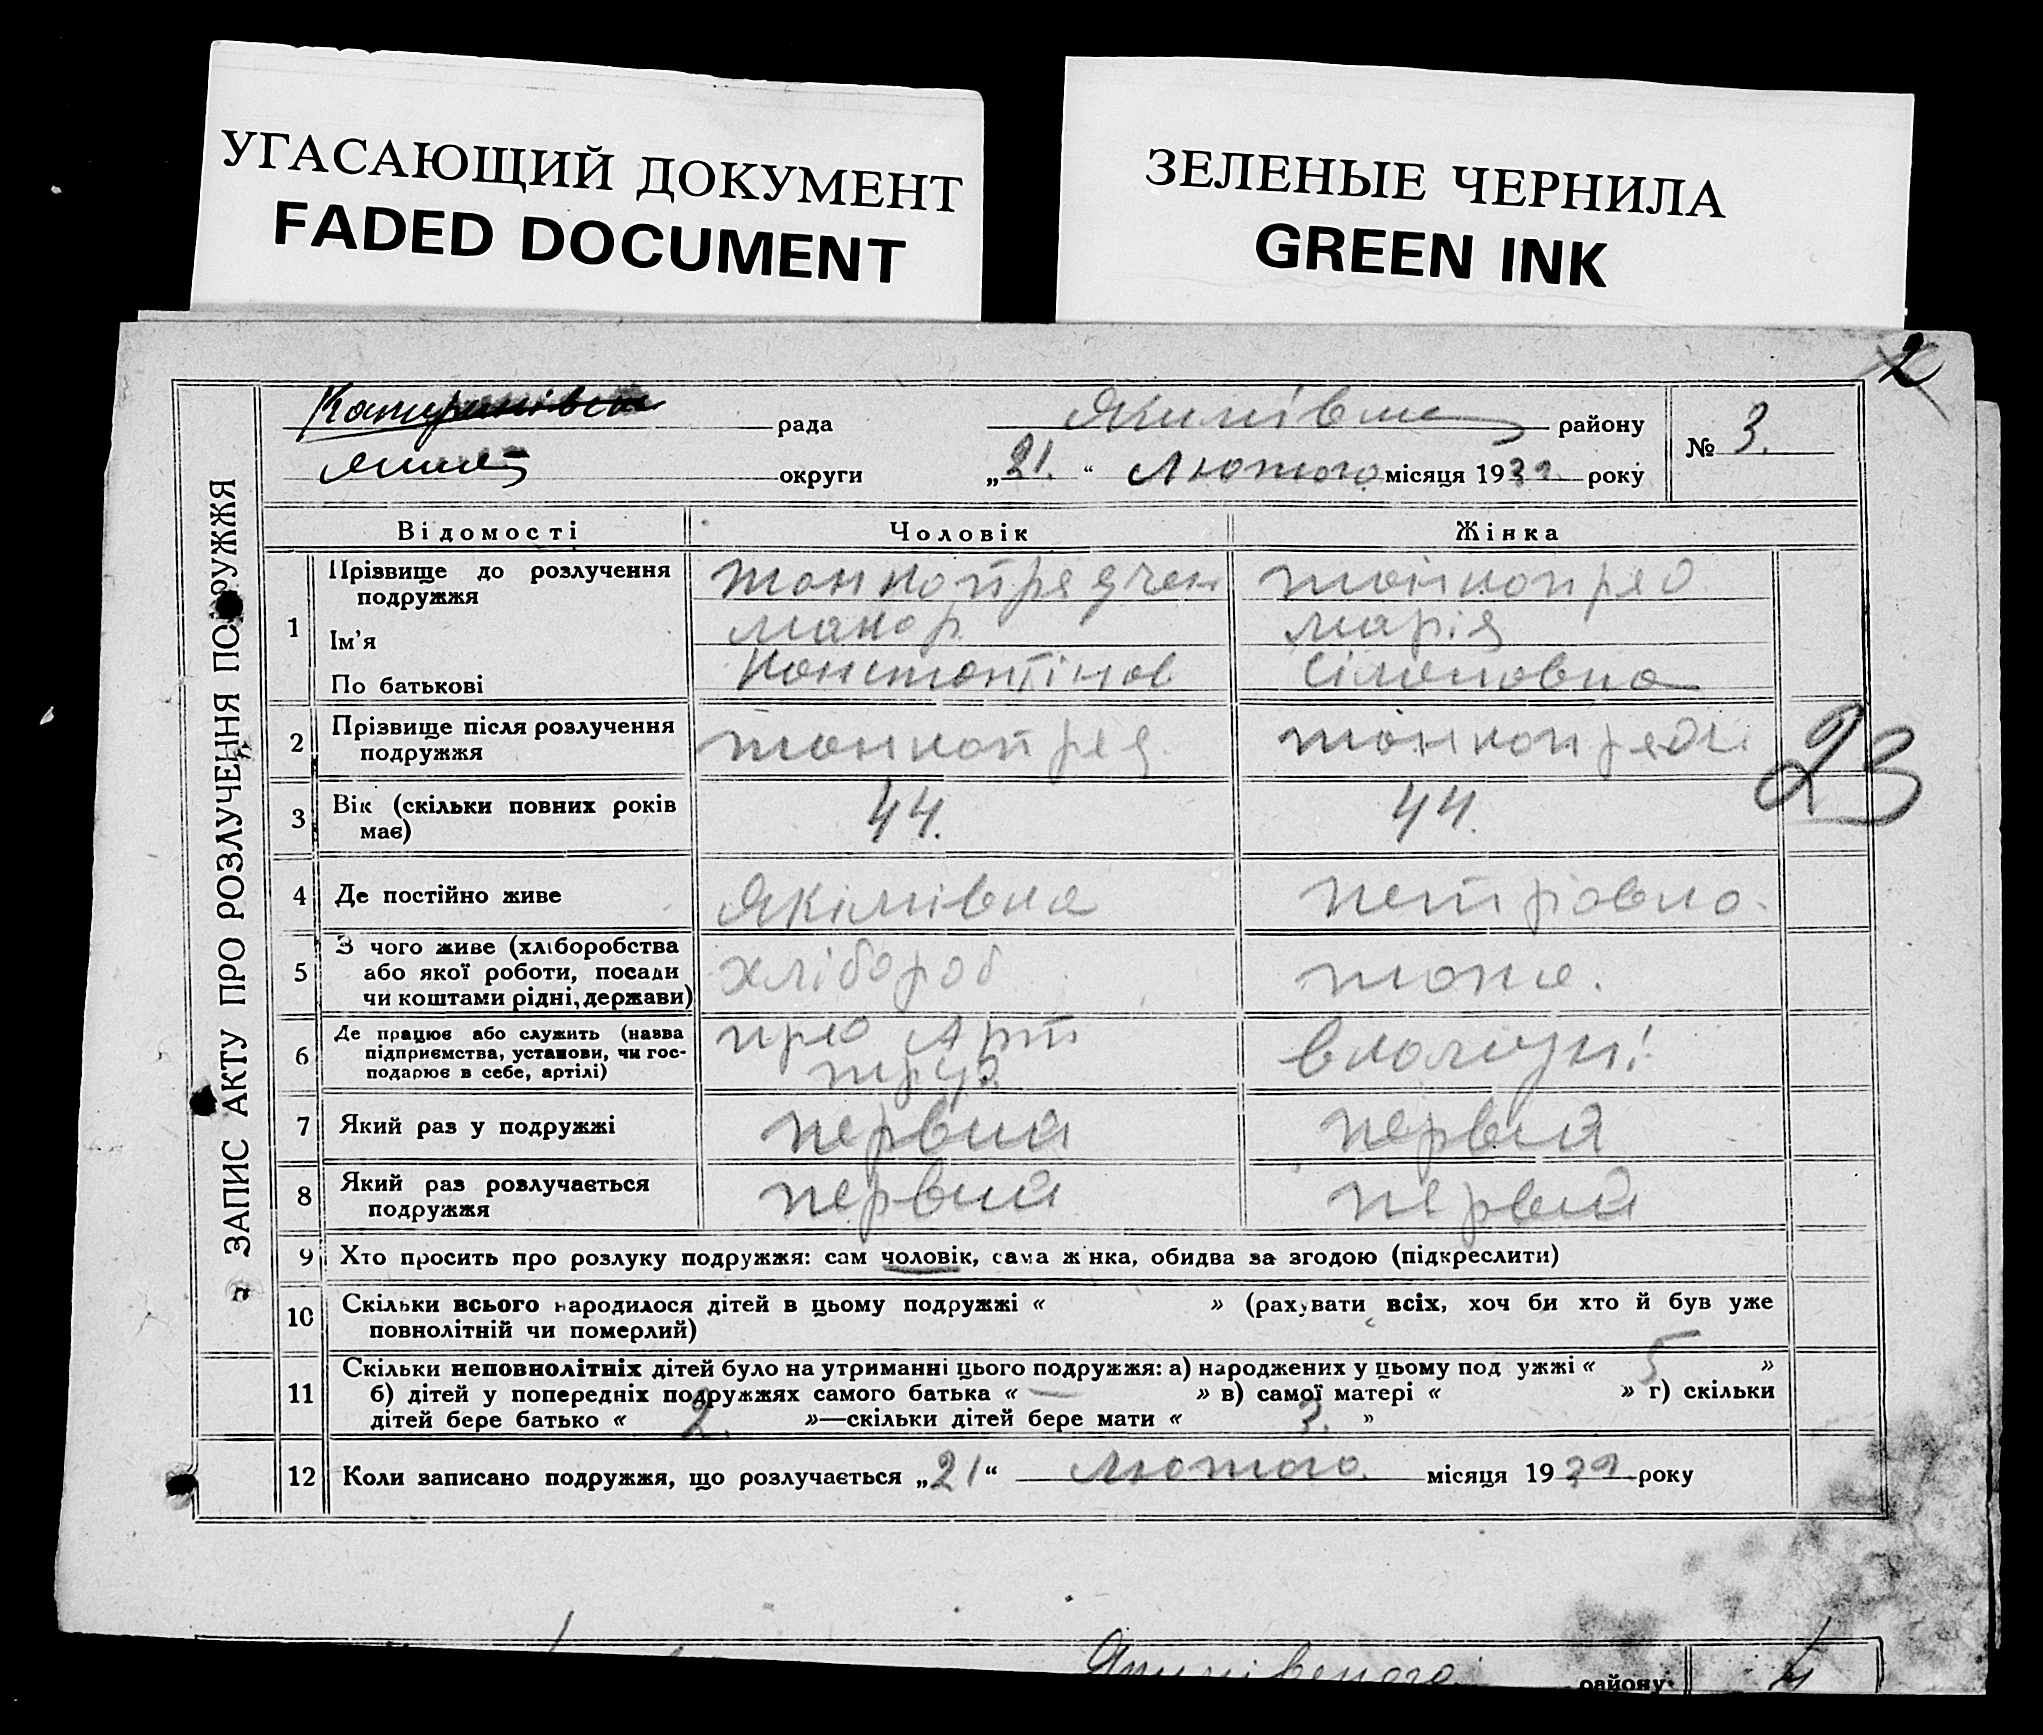 УГАСАЮЩИЙ ДОКУМЕНТ
FADED DOCUMENT
ЗЕЛЕНЫЕ ЧЕРНИЛА
GREEN INK
2
ЗАПИС АКТУ ПРО РОЗЛУЧЕННЯ ПОДРУЖЖЯ
рада Якимівка району
№ 3.
округи „21.“ Лютого місяця 19 року
Відомості Чоловік Жінка
1 Прізвище до розлучення
подружжя
тонкопрядчен тонкопряд
Ім’я макар марія
По батькові Константінов Сімоновна
2 Прізвище після розлучення
подружжя
тонкопряд тонкопряд
23
3 Вік (скільки повних років
має)
44. 44.
4 Де постійно живе Якімівка петровка.
5 З чого живе (хліборобства
або якої роботи, посади
чи коштами рідні, держави)
хлібороб тоже.
6 Де працює або служить (назва
підприємства, установи, чи гос-
подарює в себе, артілі)
Арт
труд
7 Який раз у подружжі первий первий
8 Який раз розлучається
подружжя
первий первий
9 Хто просить про розлуку подружжя: сам чоловік, сама жінка, обидва за згодою (підкреслити)
10 Скільки всього народилося дітей в цьому подружжі « » (рахувати всіх, хоч би хто й був уже
повнолітній чи померлий)
11 Скільки неповнолітніх дітей було на утриманні цього подружжя: а) народжених у цьому подружжі « 5 »
б) дітей у попередніх подружжях самого батька « — » в) самої матері « » г) скільки
дітей бере батько « 2. »—скільки дітей бере мати « 3. »
12 Коли записано подружжя, що розлучається „21“ Лютого місяця 19 року
Якимівського району
4